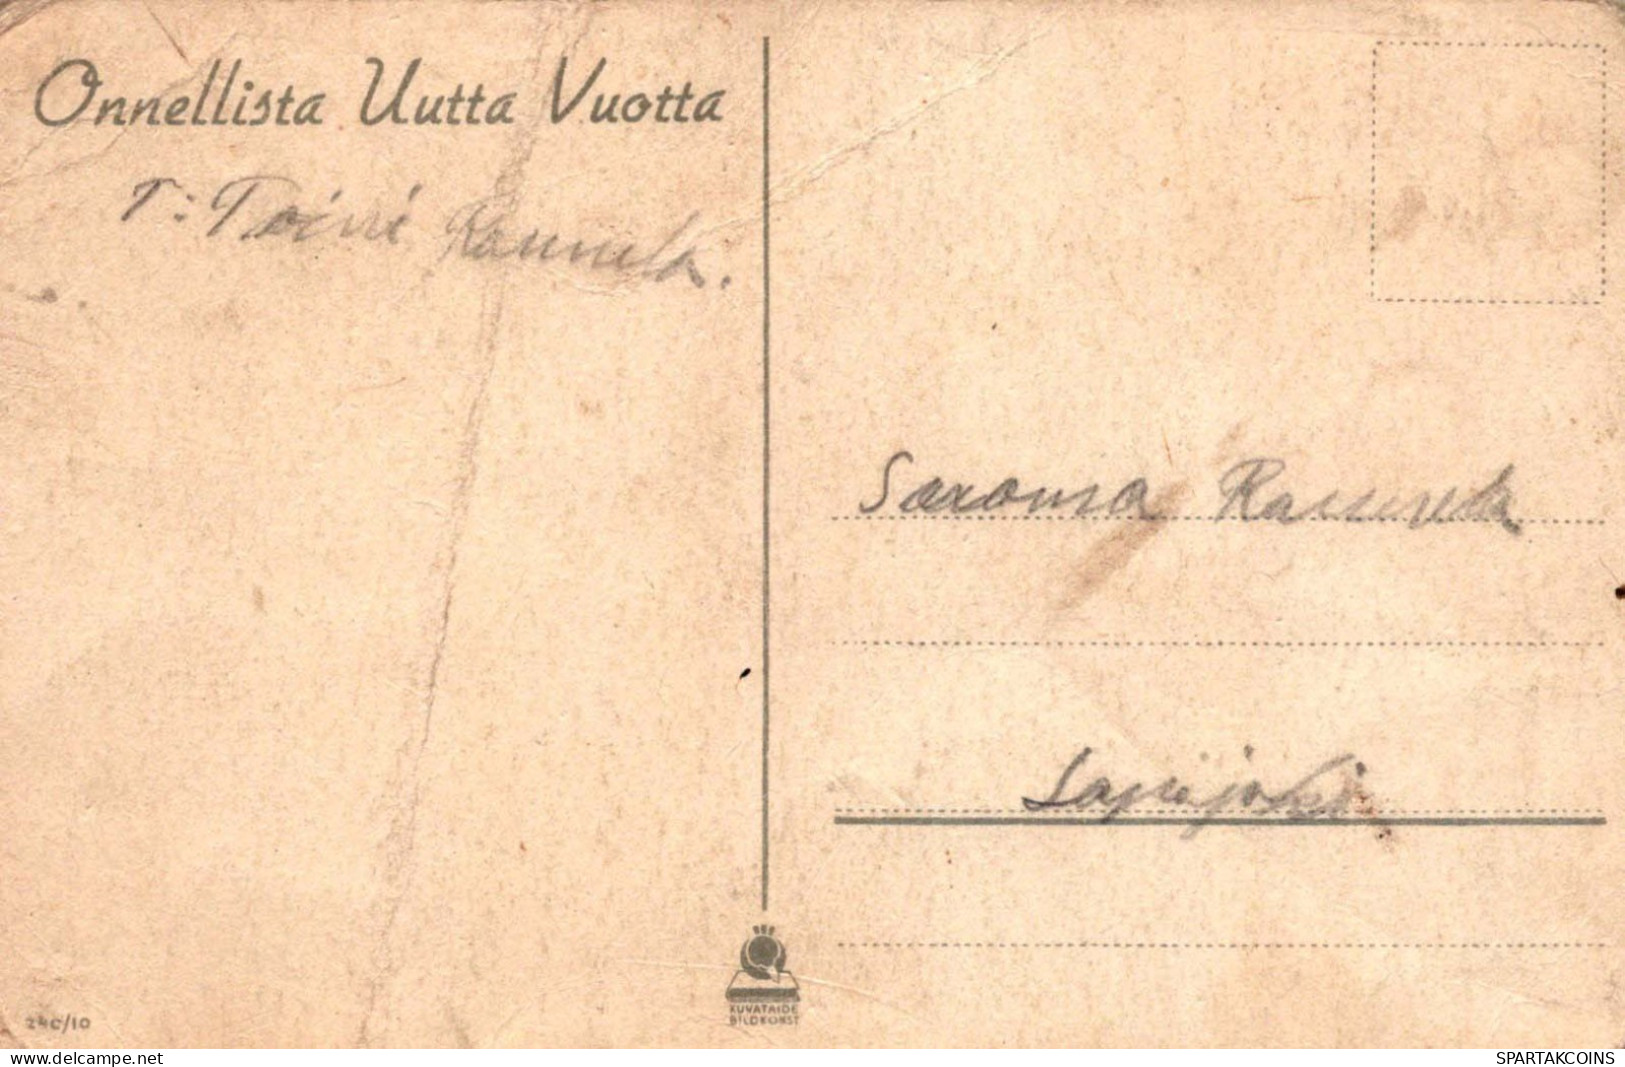 Onnellista Uutta Vuotta
T: Toivi Rannela.
Rannela
Lapijoki
24C/10
KUVATAIDE
BILDKONST
delcampe.net
SPARTAKCOINS